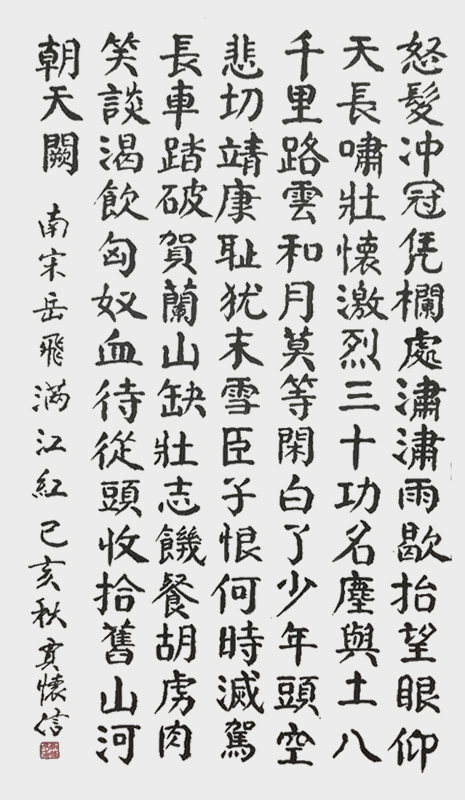 怒髮冲冠凭欄處瀟瀟雨歇抬望眼仰
天長嘯壯懷激烈三十功名塵與土八
千里路雲和月莫等閑白了少年頭空
悲切靖康耻犹未雪臣子恨何時滅駕
長車踏破賀蘭山缺壯志饑餐胡虏肉
笑談渴飲匈奴血待從頭收拾舊山河
朝天闕 南宋岳飛满江紅己亥秋懷信